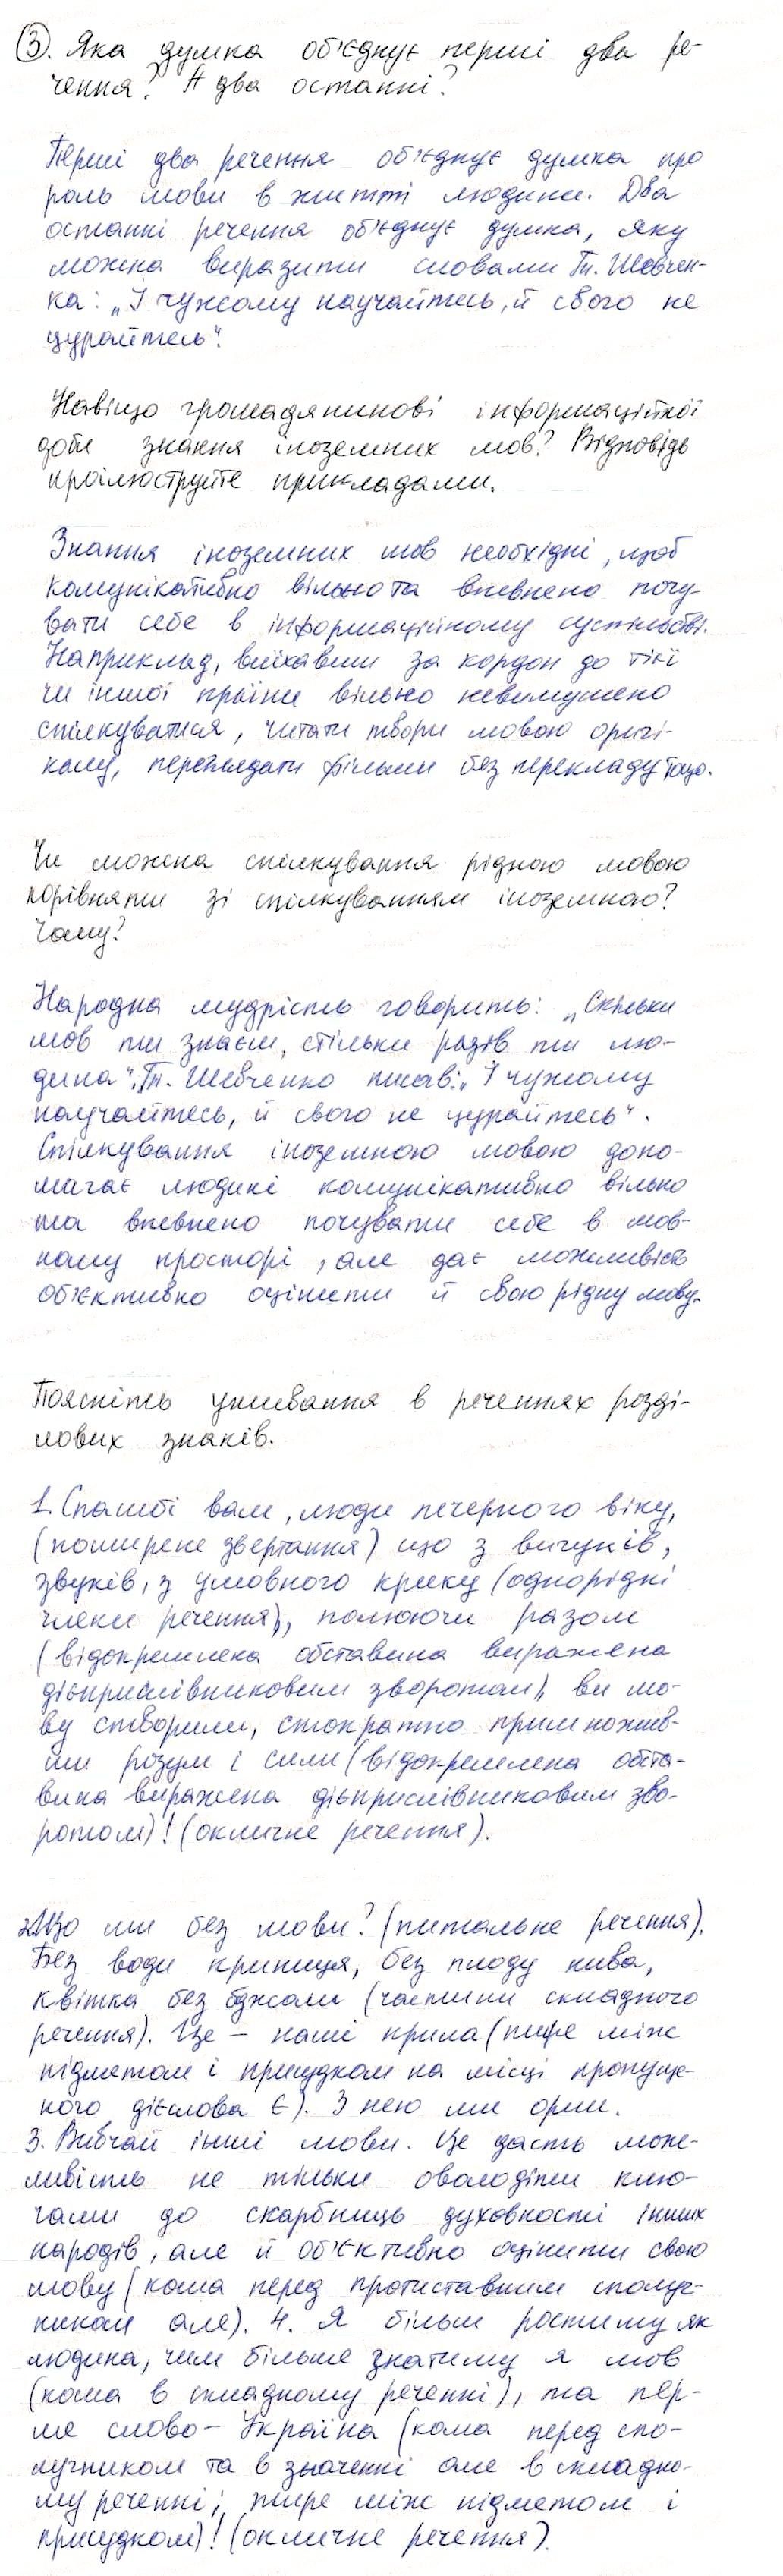 3. Яка думка об'єднує перші два ре-
чення? А два останні?
Перші два речення об'єднує думка про
роль мови в житті людини. Два
останні речення об'єднує думка, яку
можна виразити словами Т. Шевчен-
ка: „І чужому научайтесь, й свого не
цурайтесь".
Навіщо громадянинові інформаційної
доби знання іноземних мов? Відповідь
проілюструйте прикладами.
Знання іноземних мов необхідні, щоб
комунікативно вільно та впевнено почу-
вати себе в інформаційному суспільстві.
Наприклад, виїхавши за кордон до тієї
чи іншої країни вільно невимушено
спілкуватися, читати твори мовою оригі-
налу, переглядати фільми без перекладу тощо.
Чи можна спілкування рідною мовою
порівняти зі спілкуванням іноземною?
Чому?
Народна мудрість говорить: „Скільки
мов ти знаєш, стільки разів ти лю-
дина". Т. Шевченко писав: „І чужому
научайтесь, й свого не цурайтесь".
Спілкування іноземною мовою допо-
магає людині комунікативно вільно
та впевнено почувати себе в мов-
ному просторі, але дає можливість
об'єктивно оцінити й свою рідну мову.
Поясніть уживання в реченнях розді-
лових знаків.
1. Спасибі вам, люди печерного віку,
(поширене звертання) що з вигуків,
звуків, з умовного крику (однорідні
члени речення), полюючи разом
(відокремлена обставина виражена
дієприслівниковим зворотом), ви мо-
ву створили, стократно примножив-
ши розум і сили (відокремлена обста-
вина виражена дієприслівниковим зво-
ротом)! (окличне речення).
2. Що ми без мови? (питальне речення).
Без води криниця, без плоду нива,
квітка без бджоли (частини складного
речення). Це – наші крила (тире між
підметом і присудком на місці пропуще-
ного дієслова є). З нею ми орли.
3. Вивчай інші мови. Це дасть мож-
ливість не тільки оволодіти клю-
чами до скарбниць духовності інших
народів, але й об'єктивно оцінити свою
мову (кома перед протиставним сполуч-
ником але). 4. Я більш ростиму як
людина, чим більше знатиму я мов
(кома в складному реченні), та пер-
ше слово – Україна (кома перед спо-
лучником та в значенні але в складно-
му реченні; тире між підметом і
присудком)! (окличне речення).